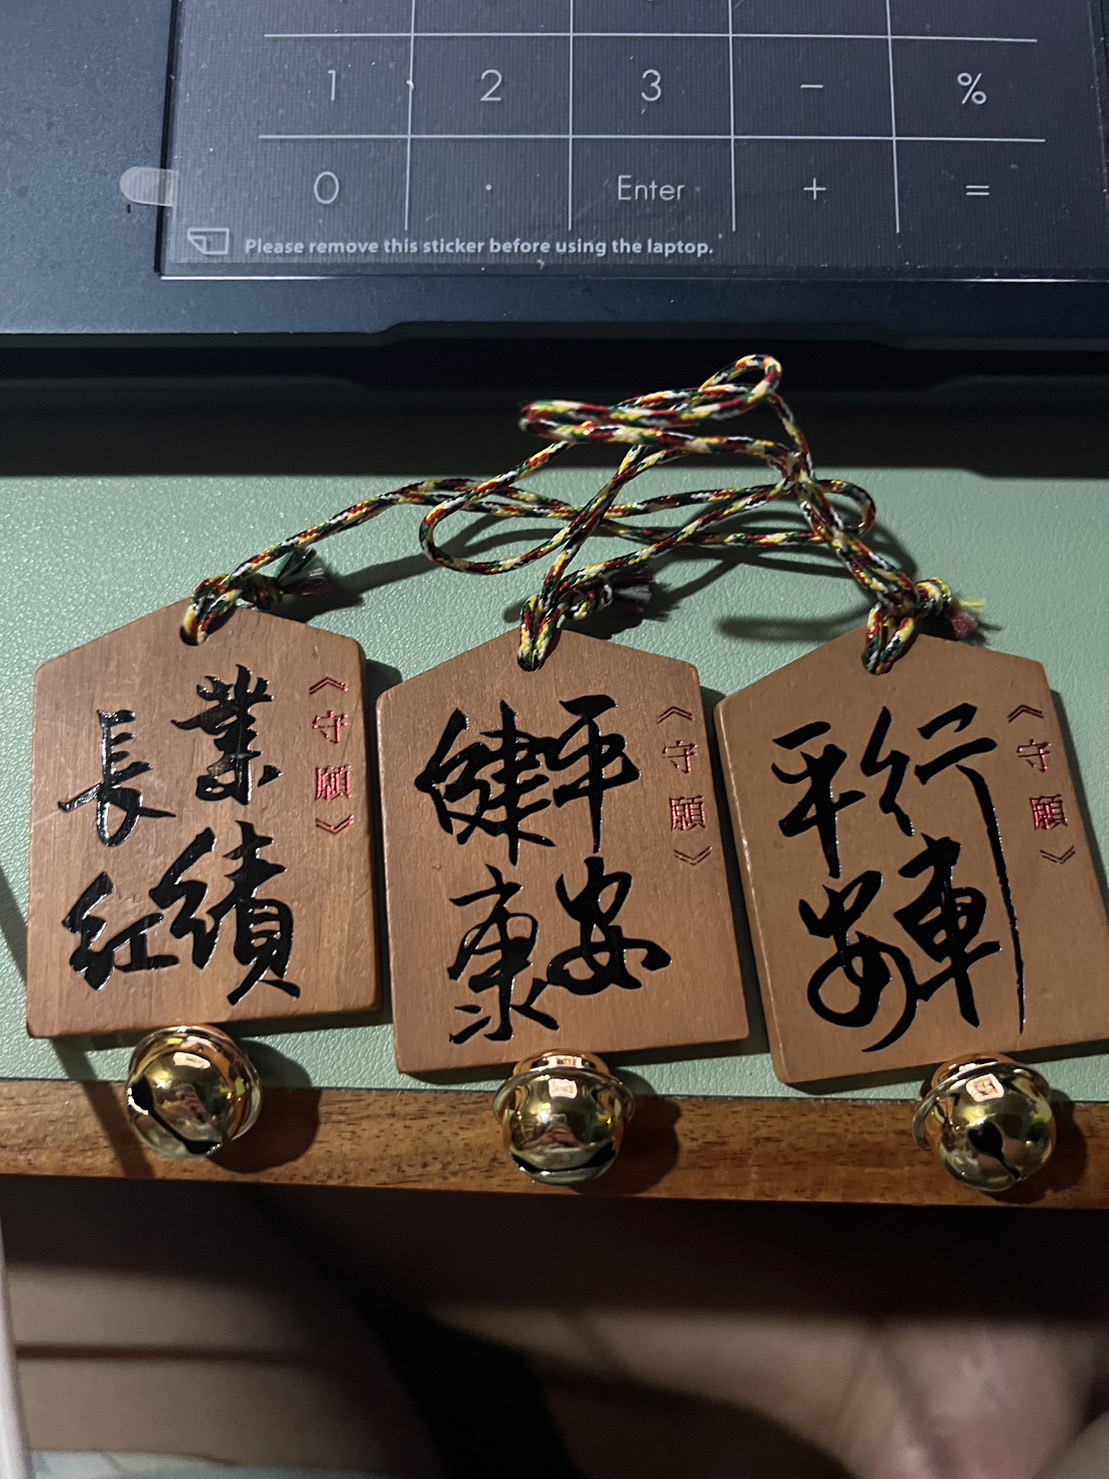 1 2 3 - %
0 . Enter + =
Please remove this sticker before using the laptop.
《守願》
業績
長紅
《守願》
平安
健康
《守願》
行車
平安